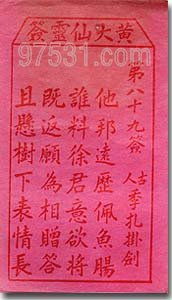 黃大仙靈簽
97531.com
第八十九簽
古人
季札掛劍
他邦遠歷佩魚腸
誰料徐君意欲將
既返願為相贈答
且懸樹下表情長